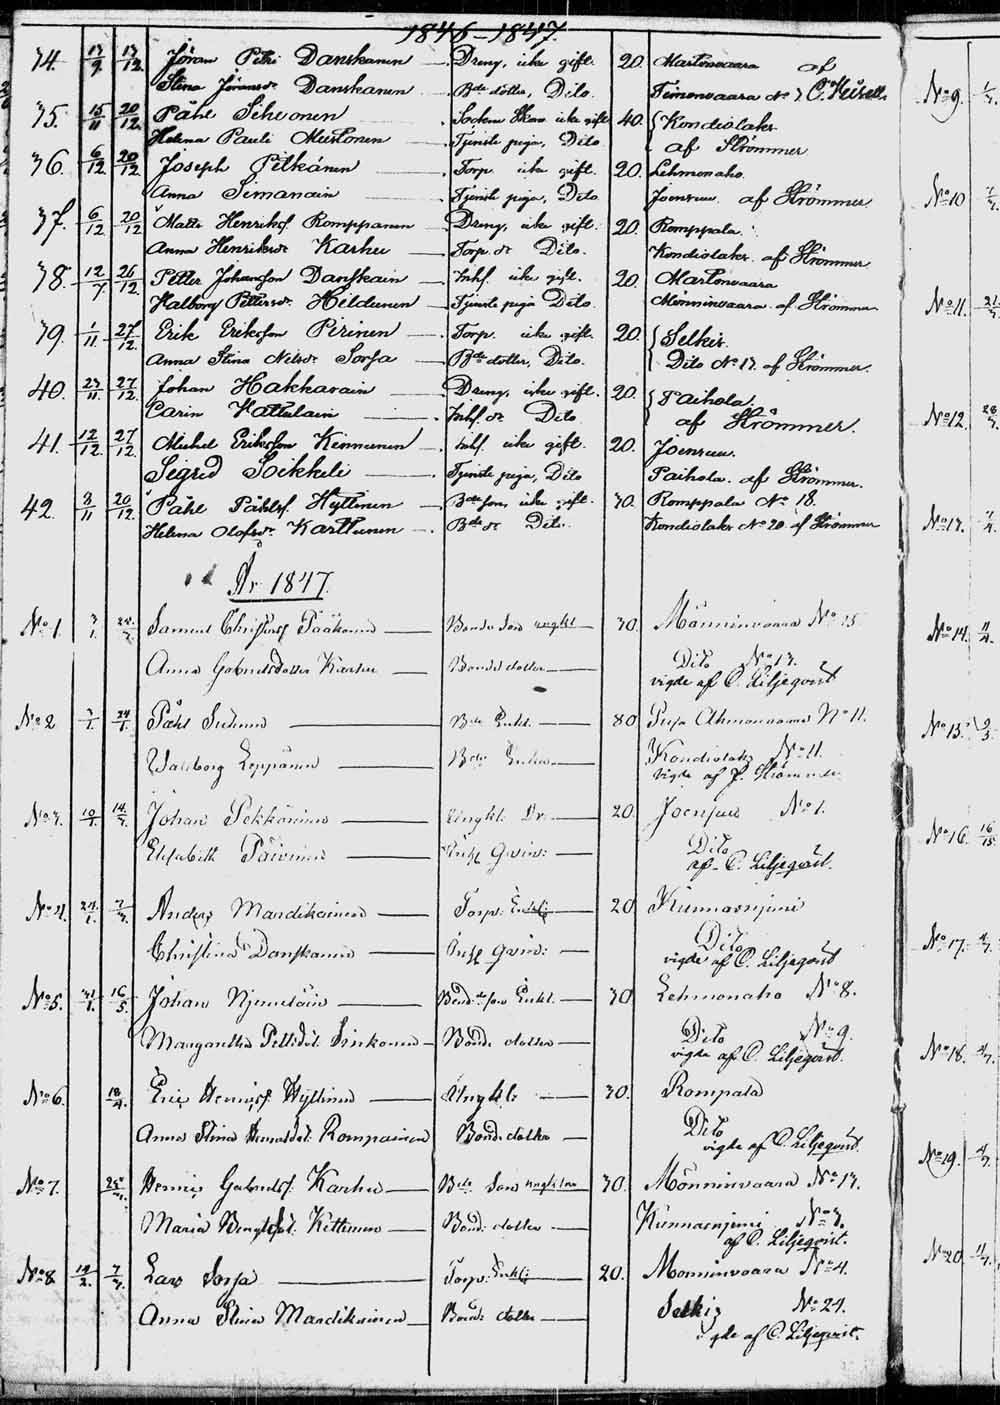 1846-1847.
34. 13/9 13/12. Jöran Petri Danskanen Dreng, icke gift. 20. Martonvaara af
Stina Jöransdr Danskanen Bde dotter, Dito. Timonvaara No 7
35. 15/11 20/12. Påhl Sihvonen Socken Skom icke gift 40. Kondiolaks
Helena Pauli Mustonen Tjenste piga, Dito af Strömmer
36. 6/12 20/12 Joseph Pitkänen Torp. icke gift. 20. Lehmonaho.
Anna Simanain Tjenste piga, Dito Joensuu. af Strömmer
37. 6/12 20/12 Matts Henriksf. Romppanen Dreng, icke gift. 20. Romppala.
Anna Henriksdr Karhu Torp. dr Dito. Kondiolaks af Strömmer
38. 12/7 26/12 Petter Johansson Danskain Inhf. icke gift. 20. Martonvaara
Walborg Pettersdr. Hildunen Tjenste piga Dito Mönninvaara af Strömmer
39. 1/11 27/12. Erik Eriksson Pirinen Torp. icke gift. 20. Selkis.
Anna Stina Nilsdr Sorsa Bde dotter, Dito. Dito No 17. af Strömmer.
40. 23/11. 27/12 Johan Hakkarain Dreng, icke gift. 20. Paihola.
Carin Kattulain Inhf. dr Dito af Strömmer.
41. 12/12. 27/12 Michel Eriksson Kinnunen Inhf. icke gift. 20. Joensuu.
Sigrid Soikkeli Tjenste piga, Dito Paihola. af Strömmer.
42. 3/11 20/12. Påhl Påhlsf. Hyttinen Bde son, icke gift. 30. Romppala No 18.
Helena Olofsdr. Karttunen Bde dr Dito. Kondiolaks No 20. af Strömmer
År 1847.
No 1. 3/1. Samuel Christersf Pääkönen Bonde Son ungkl 30. Mönninvaara No 15
Anna Gabrielsdotter Karhu Bonde dotter Dito No 13.
vigde af C. Liljeqvist
No 2 3/1. 24/1. Påhl Bde Enkl. 80 No 11.
Walborg Leppänen Bde Enka Kondiolaks No 11.
vigde af J. Strömmer
No 3. 10/1. 14/3. Johan Pekkäninen Ungkl. Dr. 20. Joensuu No 1.
Elisabeth Päivinen Inhf Qvin: Dito
af C. Liljeqvist.
No 4. 24/1. 7/3. Anders Mandikainen Torp: Enkl: 20 Kunnasniemi
Christina Danskanen Inhf Qvin: Dito
vigde af C. Liljeqvist
No 5. 31/1. 16/5. Johan Bonde son Enkl. 30 Lehmonaho No 8.
Margaretha Pettersdr. Sinkonen Bonde dotter Dito No 9.
vigde af C. Liljeqvist.
No 6. 18/4. Eric Henricsf. Hyttinen Ungkl: 30. Rompala
Anna Stina Henricsdr. Rompainen Bonde dotter Dito
vigde af C. Liljeqvist.
No 7. Henric Gabrielsf. Karhu Bde Son ungkl 30. Mönninvaara No 13.
Maria Bengtsdr. Kettunen Bonde dotter Kunnasniemi No 3.
af C. Liljeqvist.
No 8. 14/2. 7/3. Lars Sorsa Torp: Enkl: 20. Monninvaara No 4.
Anna Stina Mandikainen Bonde dotter Selkiz No 24.
vigde af C. Liljeqvist.
No 9.
No 10
No 11.
No 12.
No 13.
No 14.
No 15.
No 16.
No 17.
No 18.
No 19.
No 20.